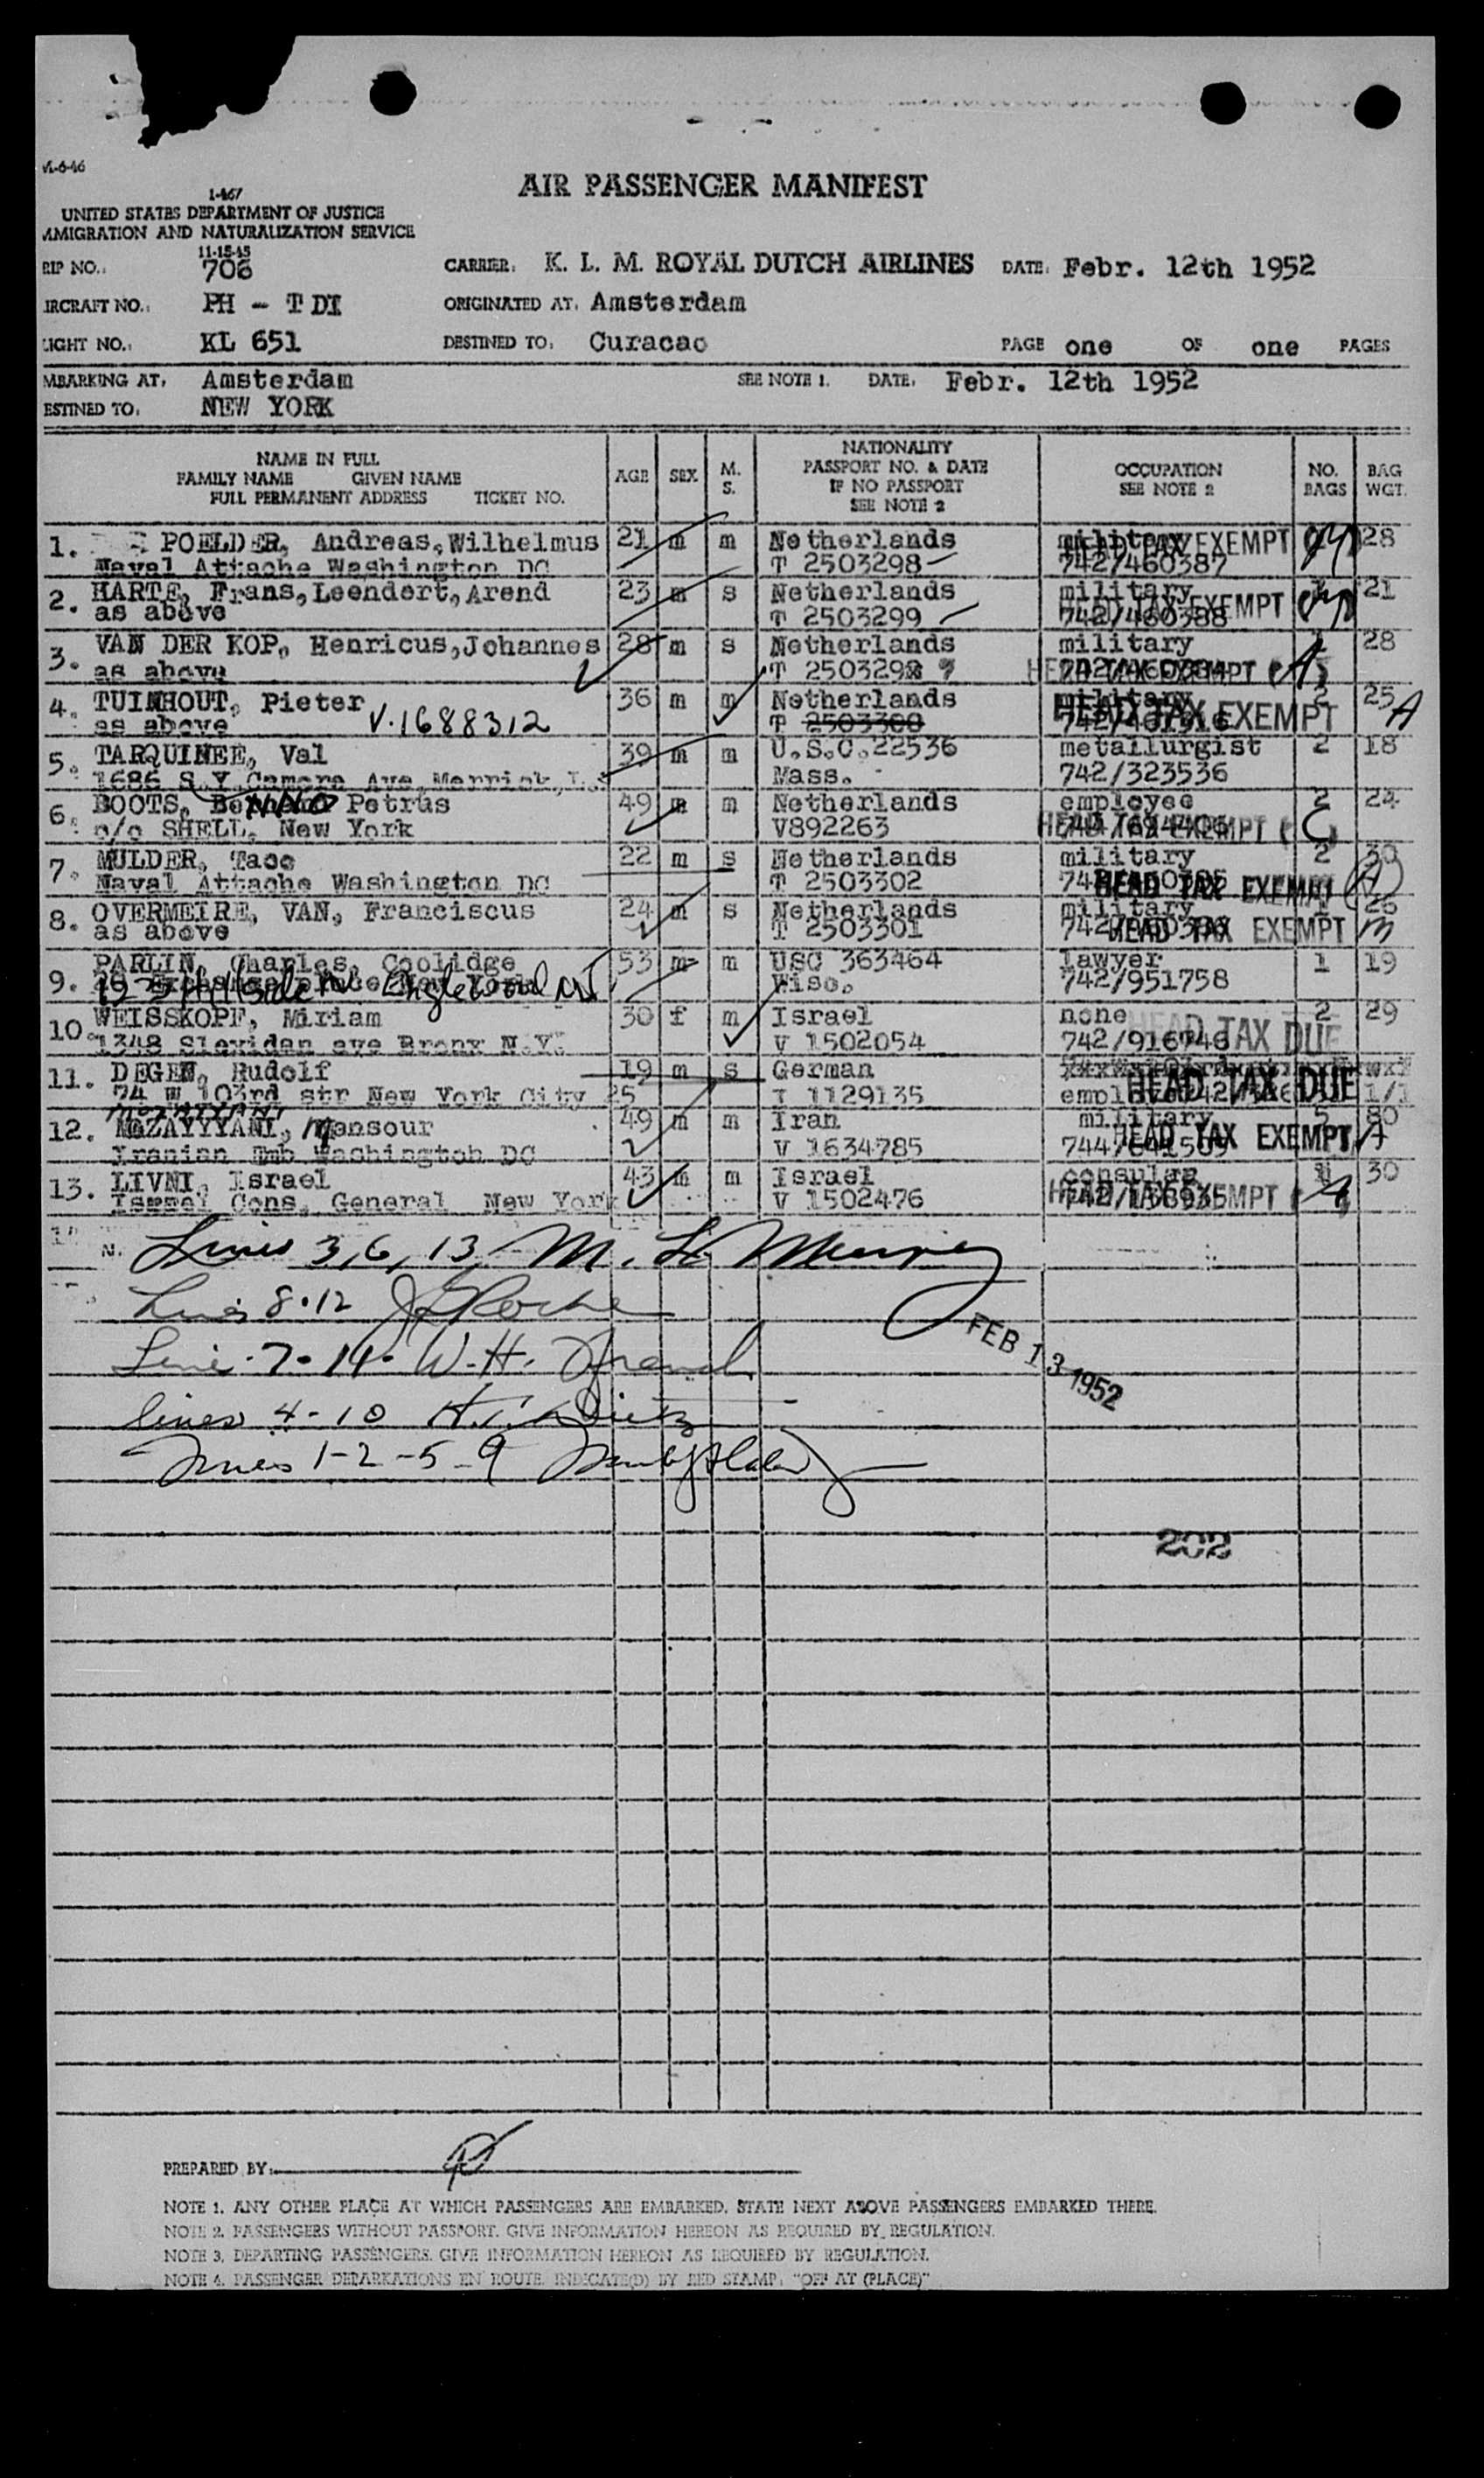 AIR PASSENGER MANIFEST
1-467
UNITED STATES DEPARTMENT OF JUSTICE
MMIGRATION AND NATURALIZATION SERVICE
11-15-45
RIP NO.: 706 CARRIER: K. L. M. ROYAL DUTCH AIRLINES DATE: Febr. 12th 1952
IRCRAFT NO.: PH - TDI ORIGINATED AT: Amsterdam
LIGHT NO.: KL 651 DESTINED TO: Curacao PAGE one OF one PAGES
MBARKING AT: Amsterdam SEE NOTE 1. DATE: Febr. 12th 1952
ESTINED TO: NEW YORK
NAME IN FULL
FAMILY NAME GIVEN NAME
FULL PERMANENT ADDRESS TICKET NO.
AGE SEX M. S.
NATIONALITY
PASSPORT NO. & DATE
IF NO PASSPORT
SEE NOTE 2
OCCUPATION
SEE NOTE 2
NO. BAGS
BAG WGT.
1. POELDER, Andreas,Wilhelmus 21 m m Netherlands military HEAD TAX EXEMPT 28
Naval Attache Washington DC T 2503298 742/460387
2. HARTE, Frans,Leendert,Arend 23 m s Netherlands military HEAD TAX EXEMPT 21
as above T 2503299 742/460388
3. VAN DER KOP, Henricus,Johannes 28 m s Netherlands military 28
as above T 250329 7 HEAD TAX EXEMPT
4. TUINHOUT, Pieter 36 m m Netherlands military 2 25 A
as above V.1688312 T 2503300 HEAD TAX EXEMPT
5. TARQUINEE, Val 39 m m U.S.C.22536 metallurgist 2 18
1686 Ave Merrick, Mass. 742/323536
6. BOOTS, Petrus 49 m m Netherlands employee 2 24
c/o SHELL, New York V892263 HEAD TAX EXEMPT
7. MULDER, Taco 22 m s Netherlands military 2 30
Naval Attache Washington DC T 2503302 HEAD TAX EXEMPT
8. OVERMEIRE, VAN, Franciscus 24 m s Netherlands military
as above T 2503301 HEAD TAX EXEMPT
9. PARLIN, Charles, Coolidge 53 m m USC 363464 lawyer 1 19
Englewood NJ Wisc. 742/951758
10. WEISSKOPF, Miriam 30 f m Israel none 2 29
1348 ave Bronx N.Y. V 1502054 742/916746 HEAD TAX DUE
11. DEGEN, Rudolf 19 m s German
74 W 103rd str New York City 25 I 1129135 HEAD TAX DUE
12. MOZAYYANI, Mansour 49 m m Iran military 5 80
Iranian Emb Washington DC V 1634785 HEAD TAX EXEMPT
13. LIVNI, Israel 43 m m Israel consular 30
Israel Cons. General New York V 1502476 HEAD TAX EXEMPT
Lines 3,6,13, M.
Lines 8.12
FEB 13 1952
Line 7-14- W.H.
lines 4-10 H.
Lines 1-2-5-9
202
PREPARED BY:
NOTE 1. ANY OTHER PLACE AT WHICH PASSENGERS ARE EMBARKED. STATE NEXT ABOVE PASSENGERS EMBARKED THERE.
NOTE 2. PASSENGERS WITHOUT PASSPORT. GIVE INFORMATION HEREON AS REQUIRED BY REGULATION.
NOTE 3. DEPARTING PASSENGERS. GIVE INFORMATION HEREON AS REQUIRED BY REGULATION.
NOTE 4. PASSENGER DEBARKATIONS EN ROUTE. INDICATE(D) BY RED STAMP: "OFF AT (PLACE)"